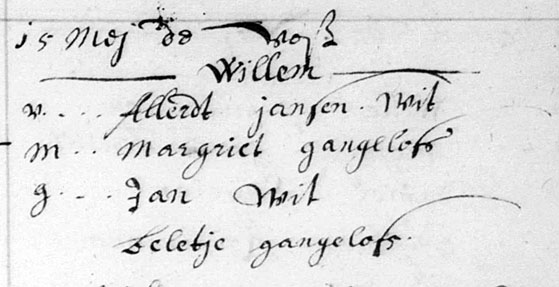 15 Mej de voß
Willem
v... Allerdt jansen. Wit
m.. margriet gangelofs
g... Jan Wit
beletje gangelofs.